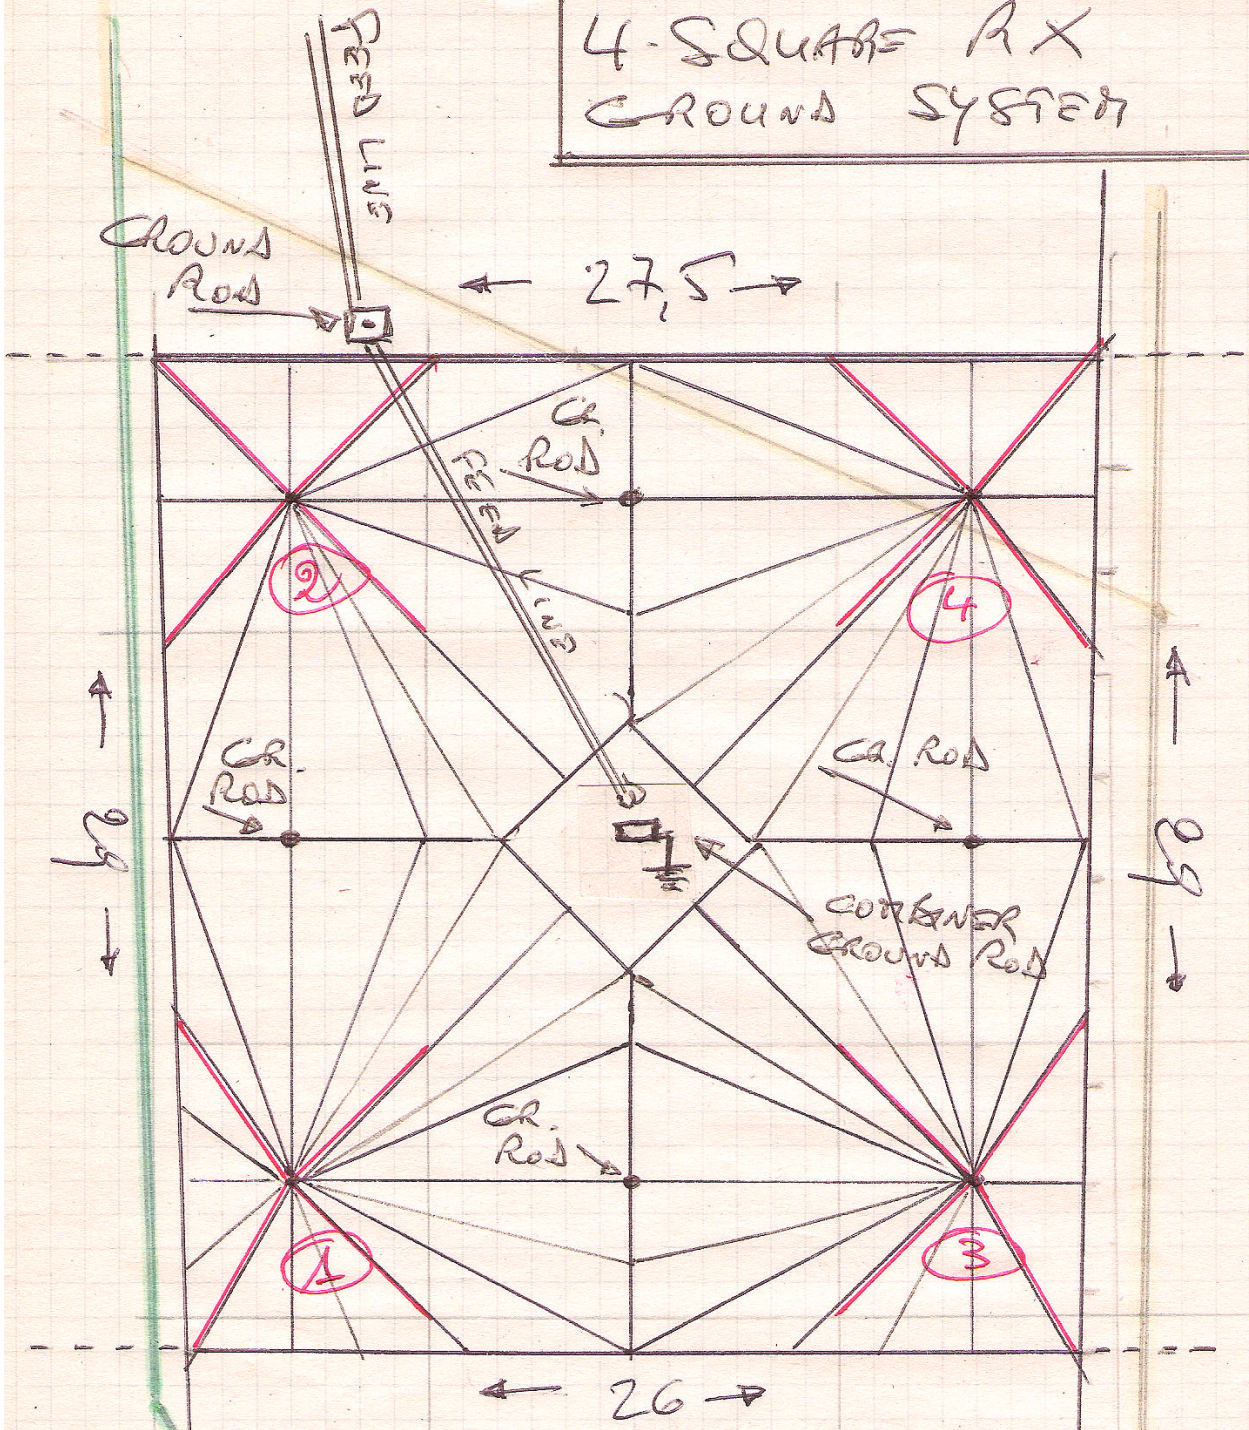 4-SQUARE RX
GROUND SYSTEM
FEED LINE
GROUND
ROD
27,5
GR.
ROD
FEED LINE
2
4
GR.
ROD
GR. ROD
29
29
COMBINER
GROUND ROD
GR.
ROD
1
3
26